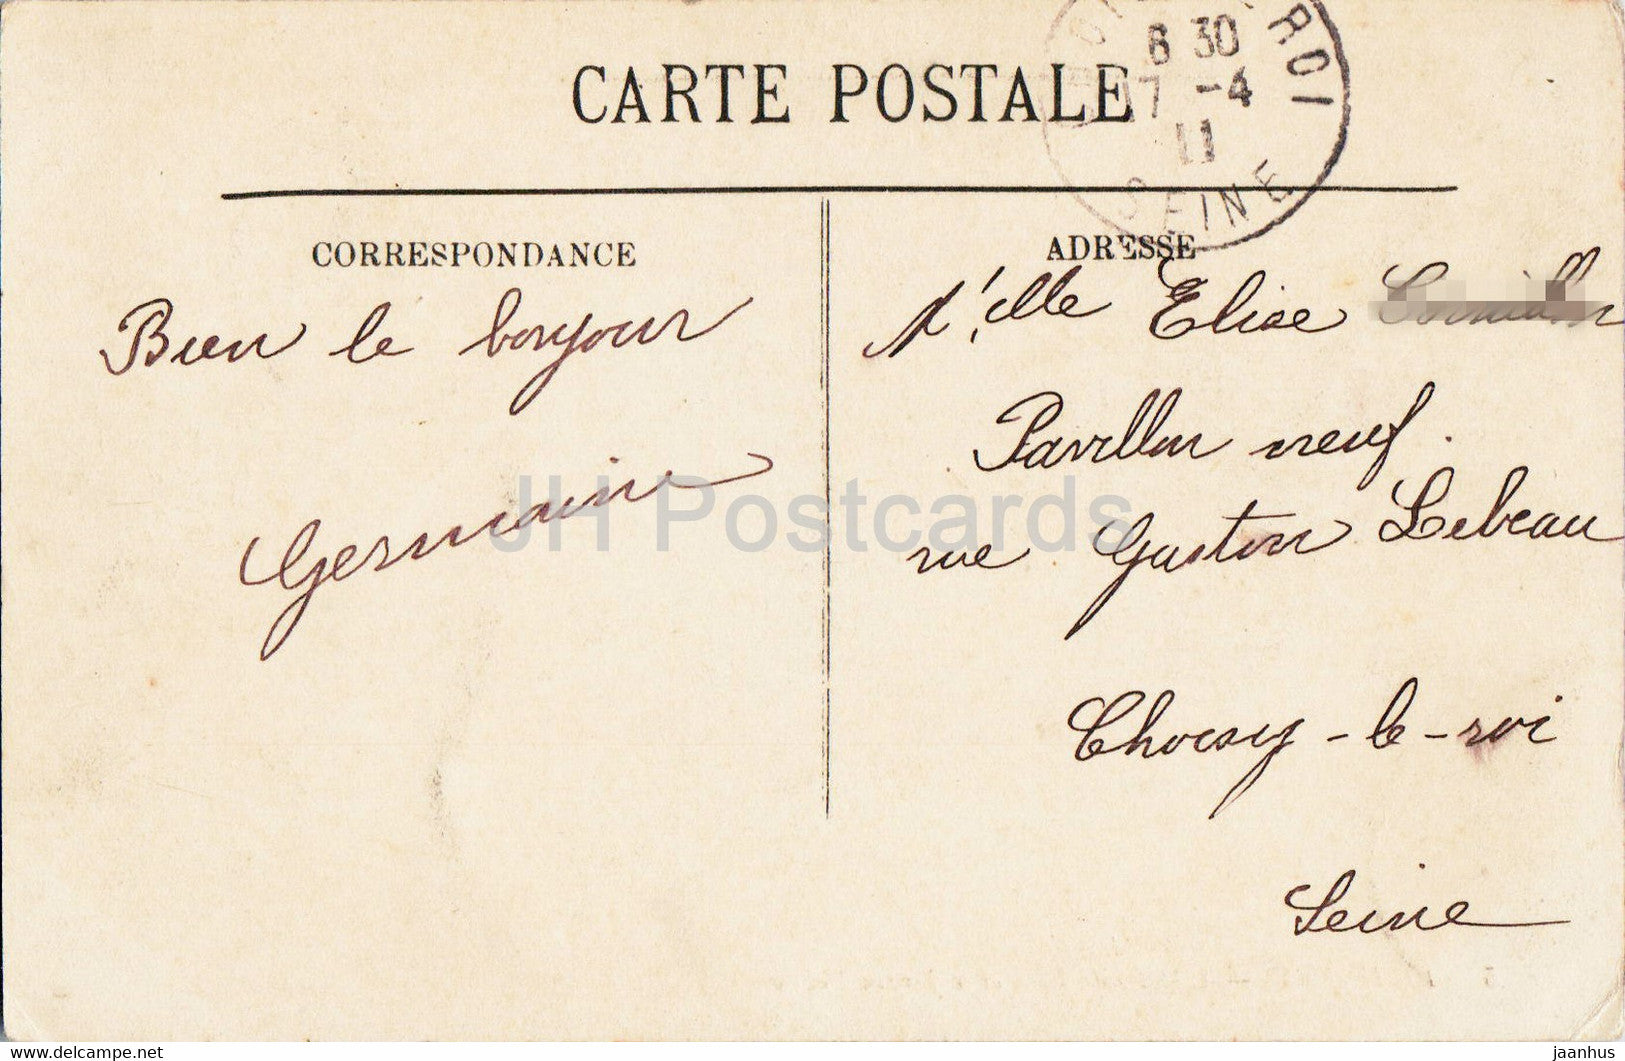 CARTE POSTALE
8 30
17 -4
11
ROI
SEINE
CORRESPONDANCE
Bien le bonjour
Germaine
ADRESSE
M'elle Elise
Pavillon neuf.
rue Gaston Lebeau
Choisy-le-roi
Seine
JH Postcards
www.delcampe.net
jaanhus